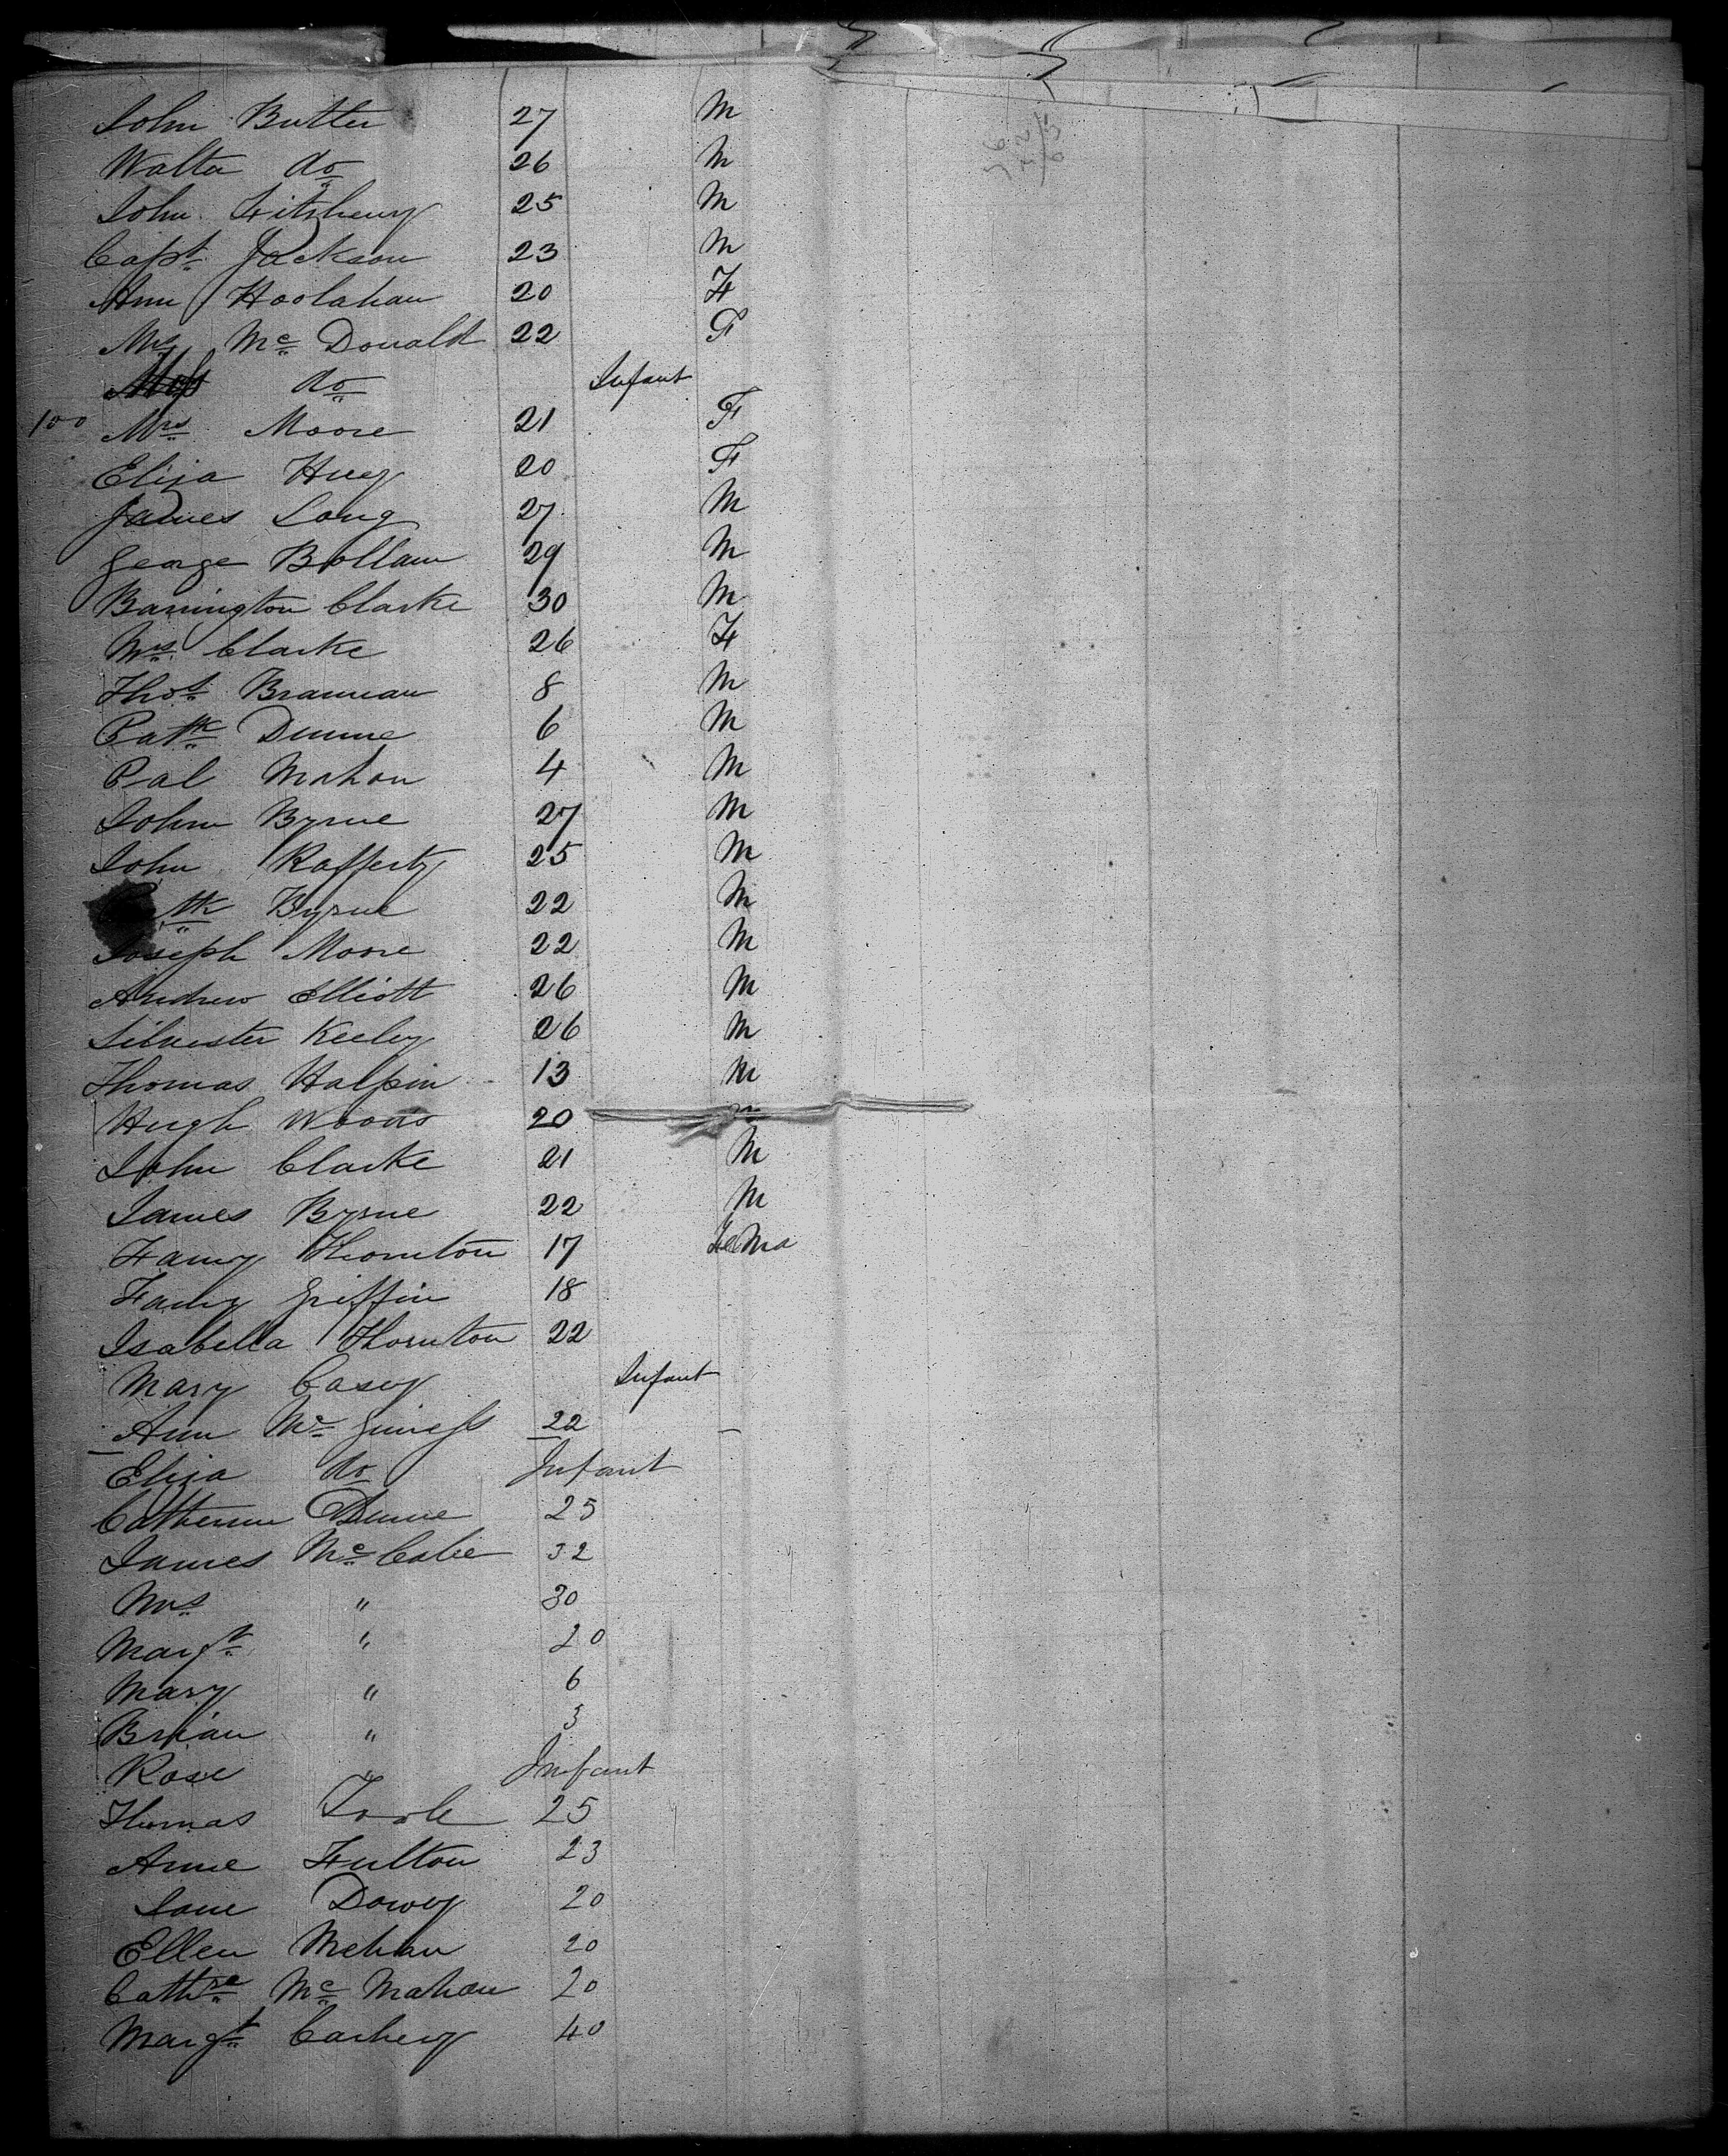 John Butler 27 M
Walter do 26 M
John Fitzhenry 25 M
Capt. Jackson 23 M
Ann Hoolahan 20 F
Mrs Mc Donald 22 F
do Infant
100 Mrs Moore 21 F
Eliza Huey 20 F
James Long 27 M
George Bollam 29 M
Barrington Clarke 30 M
Mrs Clarke 26 F
Thos Brannan 8 M
Patk Dunne 6 M
Pat Mahon 4 M
John Byrne 27 M
John Rafferty 25 M
Patk Byrne 22 M
Joseph Moore 22 M
Andrew Elliott 26 M
Silvester Keeley 26 M
Thomas Halpin 13 M
Hugh Woods 20 M
John Clarke 21 M
James Byrne 22 M
Fanny Thornton 17
Fanny Griffin 18
Isabella Thornton 22
Mary Casey Infant
Ann Mc Giness 22
Eliza do Infant
Catherine Dunne 25
James Mc Cabe 32
Mrs " 30
Margt " 20
Mary " 6
Brian " 3
Rose " Infant
Thomas Toole 25
Anne Fulton 23
Jane Dowey 20
Ellen Mehan 20
Cathre Mc Mahon 20
Margt Carbery 40